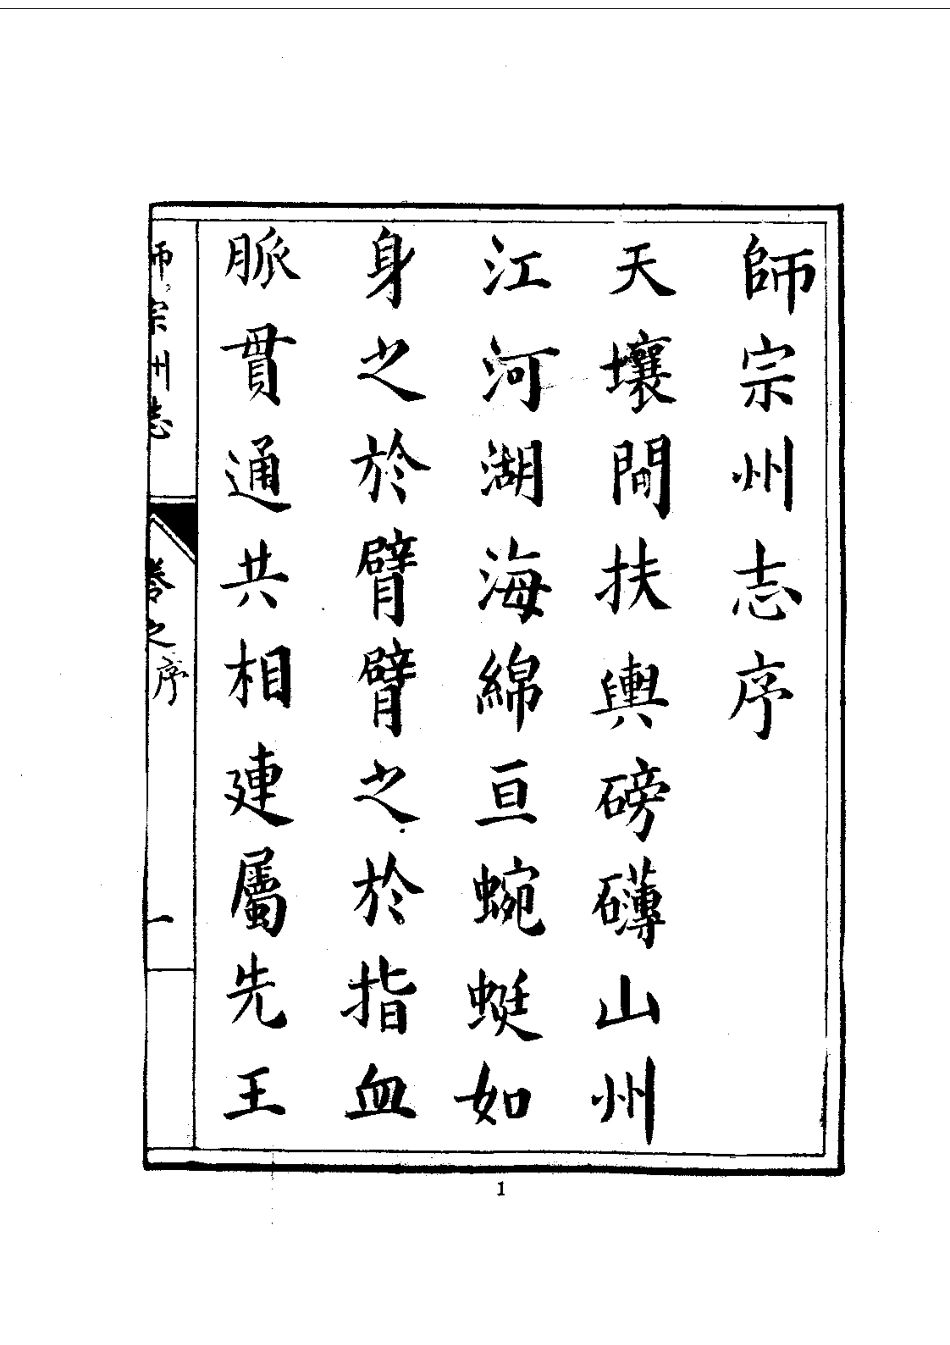 師宗州志序
天壤間扶輿磅礴山州
江河湖海綿亘蜿蜒如
身之於臂臂之於指血
脈貫通共相連屬先王
師宗州志
卷之序
一
1